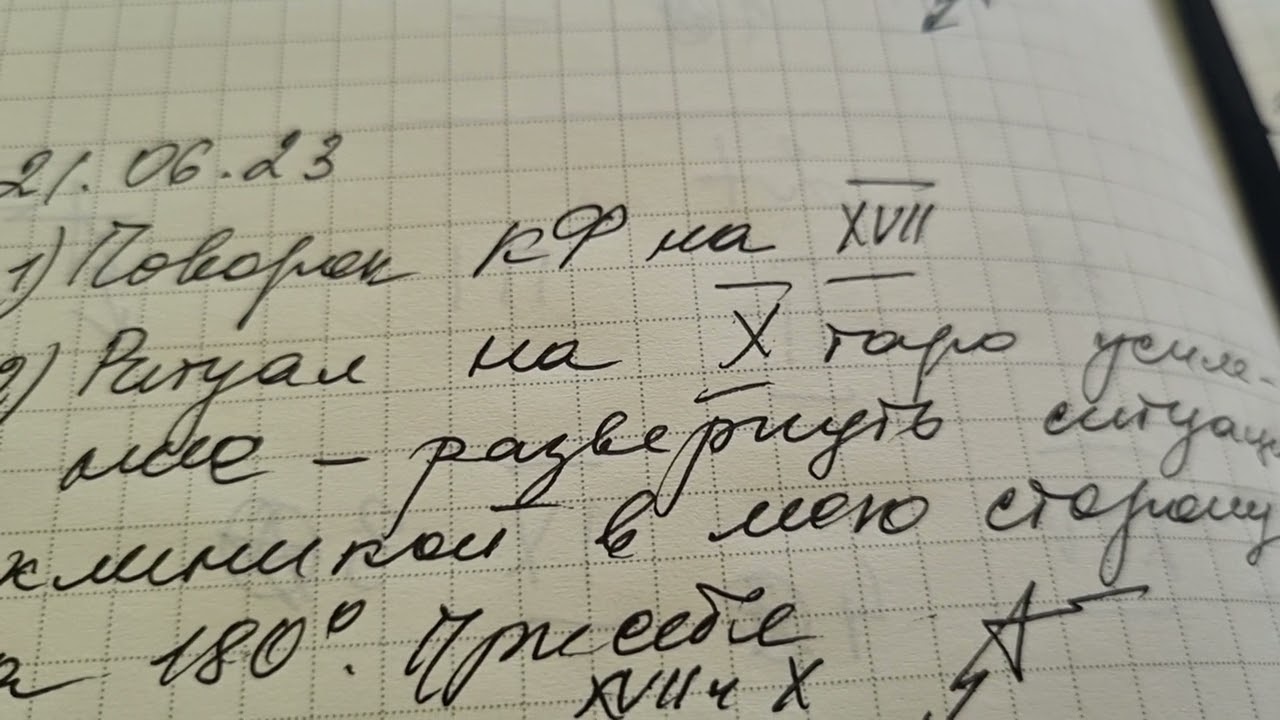 21.06.23
1) Поворот КФ на XVII
2) Ритуал на X таро усиле-
ние – развернуть ситуац
клиникой в мою сторону
а 180°. При себе
XVII и X